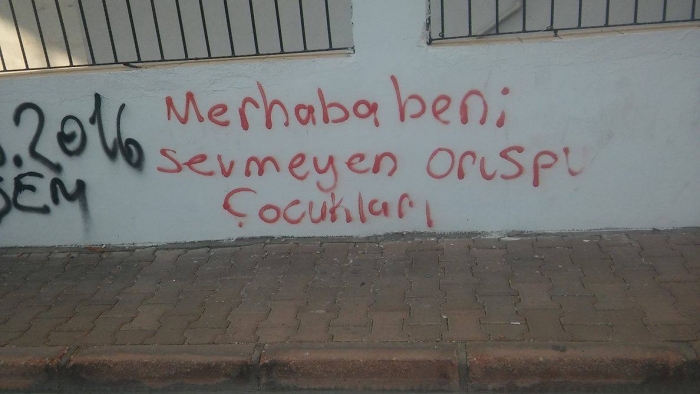 Merhaba beni
sevmeyen orospu
Çocukları
.2016
SEM